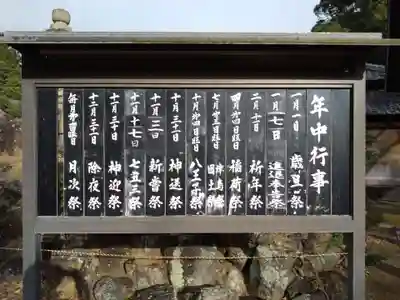 年中行事
一月一日 歳旦祭
一月七日
二月十一日 祈年祭
四月第四日曜日 稲荷祭
七月第三日曜日 津島祭
十月第四日曜日
十月三十一日 神送祭
十一月三日 新嘗祭
十一月十七日 七五三祭
十一月三十日 神迎祭
十二月三十一日 除夜祭
毎月第 日曜日 月次祭